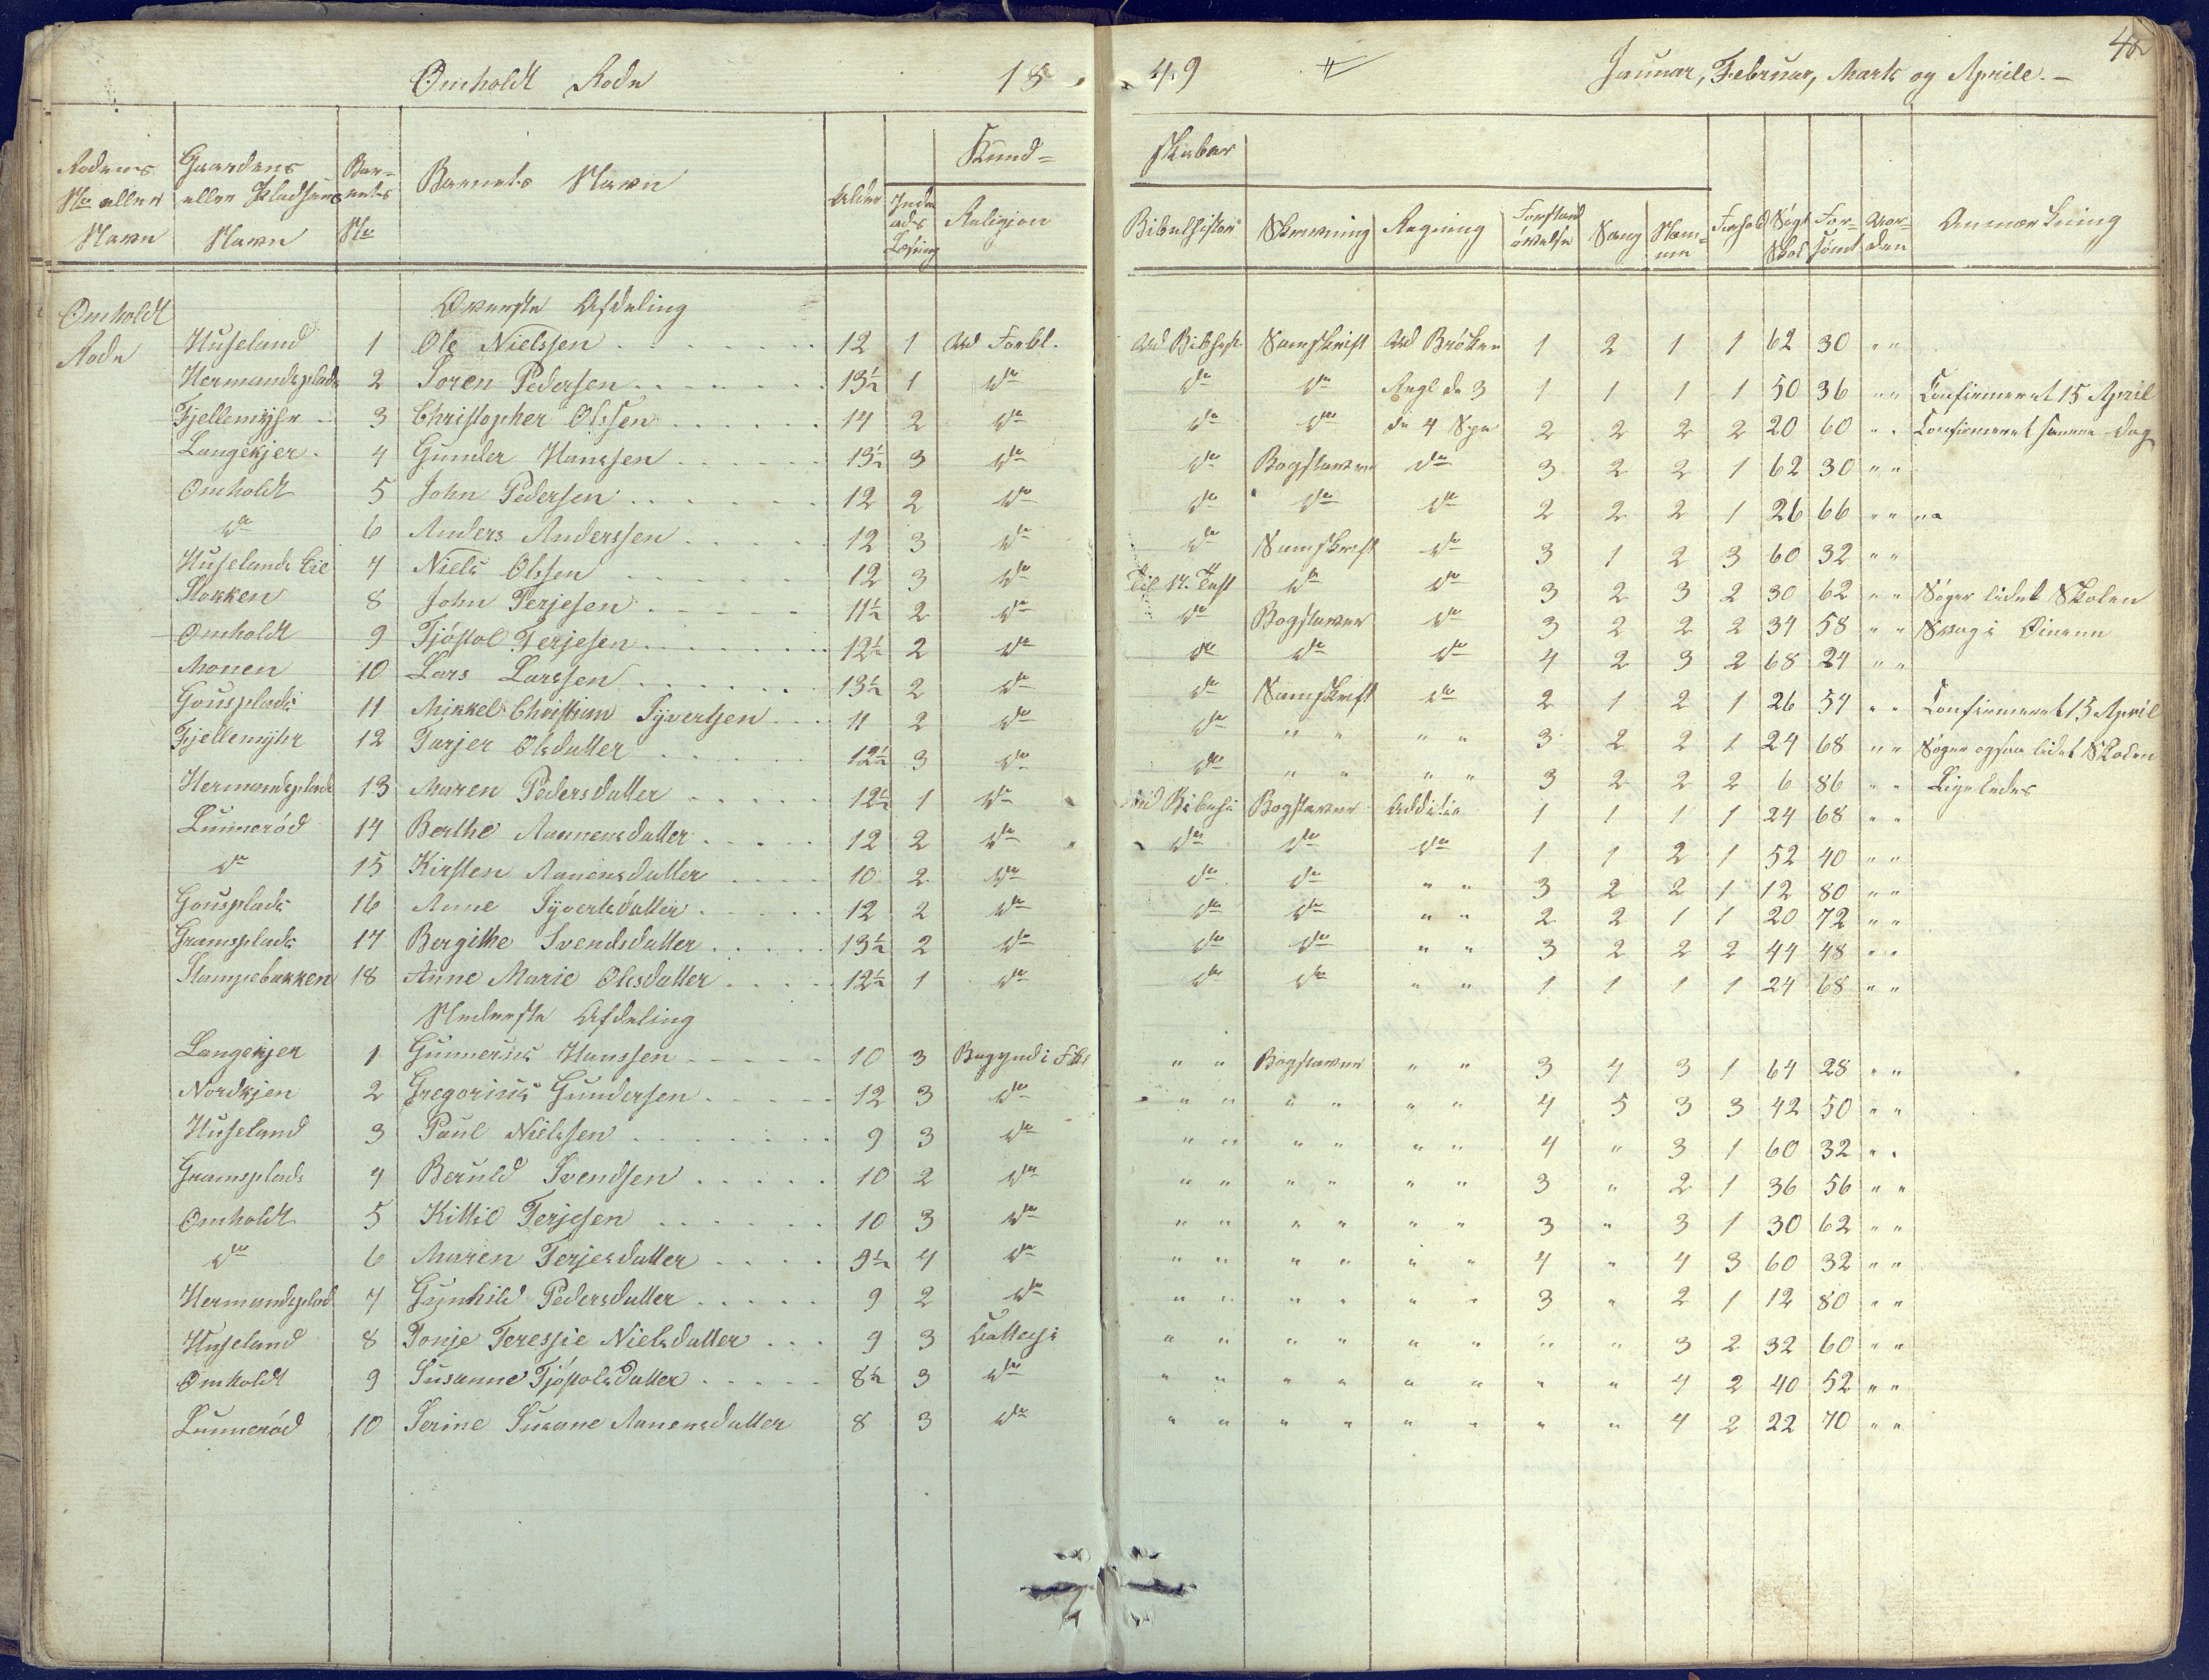 Omholdt Rode 1849 Januar, Februar, Marts og Aprile. 40
Rodens No eller Navn Gaardens eller Pladsens Navn Barnets No Barnets Navn Alder Indenads Læsning Kundskaber Religion Bibelhistori Skrivning Regning Forstandsøvelse Sang Nem- Forhold Søgt Skol Forsømt Anmærkning
Omholdt Øverste Afdeling
Rode Huseland 1 Ole Nielssen 12 1 Ud Forkl. Ud Bibhist Samskrift Ud Brøken 1 2 1 1 62 30 " "
Hermandsplads 2 Soren Pedersen 13½ 1 do do do Regl de 3 1 1 1 1 50 36 " " Confirmeret 15 April
Fjellemyhr 3 Christopher Olssen 14 2 do do do de 4 Spe 2 2 2 2 20 60 " " Confirmeret samme Dag
Langekjer 4 Gunder Hanssen 13½ 3 do do Bogstaver do 3 2 2 1 62 30 " "
Omholdt 5 John Pedersen 12 2 do do do do 2 2 2 1 26 66 " "
do 6 Anders Anderssen 12 3 do do Samskrift do 3 1 2 3 60 32 " "
Huseland 7 Niels Olssen 12 3 do do do 3 2 3 2 30 62 " " Søger lidet Skolen
Stokken 8 John Terjesen 11½ 2 do do Bogstaver do 3 2 2 2 34 58 " " Svag i Øinene
Omholdt 9 Tjøstol Terjesen 12½ 2 do do do do 4 2 3 2 68 24 " "
Monen 10 Lars Larssen 13½ 2 do do Samskrift do 2 1 2 1 26 54 " " Confirmeret 15 April
Gousplads 11 Mikkel Christian Syvertsen 11 2 do do " " " " 3 2 2 1 24 68 " " Søger ogsaa lidet Skolen
Fjellemyhr 12 Tarjer Olsdatter 12½ 3 do do " " " " 3 2 2 2 6 86 " " Ligeledes
Hermandsplads 13 Maren Pedersdatter 12½ 1 do Bogstaver Additio 1 1 1 1 24 68 " "
Lunnerød 14 Berthe Aannensdatter 12 2 do do do do 1 1 2 1 52 40 " "
do 15 Kirsten Aanensdatter 10 2 do do do " " 3 2 2 1 12 80 " "
Gousplads 16 Anne Syvertsdatter 12 2 do do do " " 2 2 1 1 20 72 " "
Gramsplads 17 Bergithe Svendsdatter 13½ 2 do do do " " 3 2 2 2 44 48 " "
Stampebakken 18 Anne Marie Olsdatter 12½ 1 do do do " " 1 1 1 1 24 68 " "
Nederste Afdeling
Langekjer 1 Gunnerius Hanssen 10 3 Begynd i Fkl " " Bogstaver " " 3 4 3 1 64 28 " "
Nordkjen 2 Gregorius Gundersen 12 3 do " " " " " " 4 5 3 3 42 50 " "
Huseland 3 Paul Nielssen 9 3 do " " " " " " 4 " 3 1 60 32 " "
Gramsplads 4 Beruld Svendsen 10 2 do " " " " " " 3 " 2 1 36 56 " "
Omholdt 5 Kittil Terjesen 10 3 do " " " " " " 3 " 3 1 30 62 " "
do 6 Maren Terjesdatter 9½ 4 do " " " " " " 4 " 4 3 60 32 " "
Hermandsplad 7 Gunhild Pedersdatter 9 2 do " " " " " " 3 " 2 1 12 80 " "
Huseland 8 Tonje Teressie Nielsdatter 9 3 " " " " " " " " 3 2 32 60 " "
Omholdt 9 Susanne Tjøstolsdatter 8½ 3 do " " " " " " " " 4 2 40 52 " "
Lunnerød 10 Serine Susane Aanensdatter 8 3 do " " " " " " " " 4 2 22 70 " "